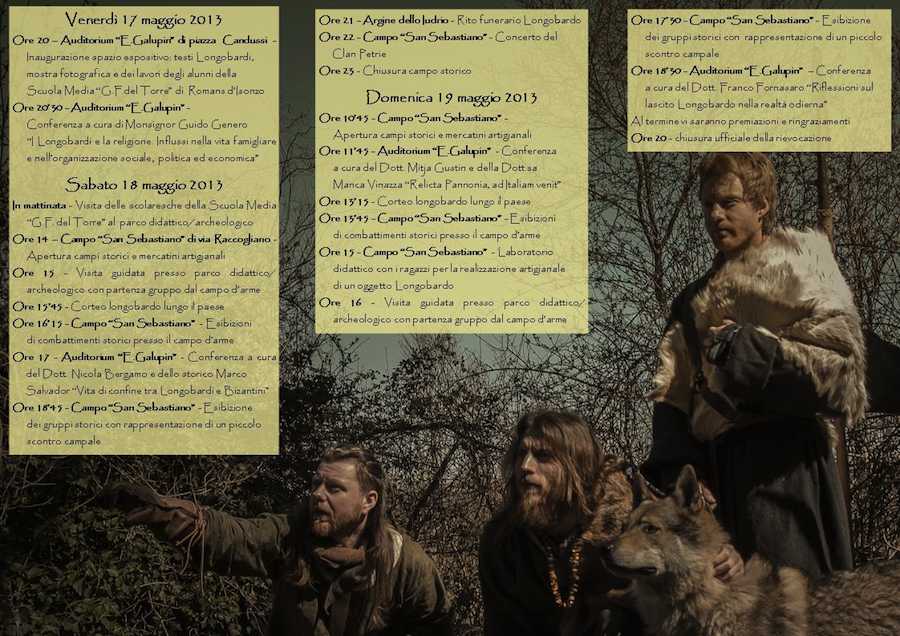 Venerdì 17 maggio 2013
Ore 20 - Auditorium "E.Galupin" di piazza Candussi -
Inaugurazione spazio espositivo: testi Longobardi,
mostra fotografica e dei lavori degli alunni della
Scuola Media "G.F.del Torre" di Romans d'Isonzo
Ore 20'30 - Auditorium "E.Galupin" -
Conferenza a cura di Monsignor Guido Genero
"I Longobardi e la religione. Influssi nella vita famigliare
e nell'organizzazione sociale, politica ed economica"
Sabato 18 maggio 2013
In mattinata - Visita delle scolaresche della Scuola Media
"G.F. del Torre" al parco didattico/archeologico
Ore 14 - Campo "San Sebastiano" di via Raccogliano -
Apertura campi storici e mercatini artigianali
Ore 15 - Visita guidata presso parco didattico/
archeologico con partenza gruppo dal campo d'arme
Ore 15'45 - Corteo longobardo lungo il paese
Ore 16'15 - Campo "San Sebastiano" - Esibizioni
di combattimenti storici presso il campo d'arme
Ore 17 - Auditorium "E.Galupin" - Conferenza a cura
del Dott. Nicola Bergamo e dello storico Marco
Salvador "Vita di confine tra Longobardi e Bizantini"
Ore 18'45 - Campo "San Sebastiano" - Esibizione
dei gruppi storici con rappresentazione di un piccolo
scontro campale
Ore 21 - Argine dello Judrio - Rito funerario Longobardo
Ore 22 - Campo "San Sebastiano" - Concerto del
Clan Petrie
Ore 23 - Chiusura campo storico
Domenica 19 maggio 2013
Ore 10'45 - Campo "San Sebastiano" -
Apertura campi storici e mercatini artigianali
Ore 11'45 - Auditorium "E.Galupin" - Conferenza
a cura del Dott. Mitja Gustin e della Dott.sa
Marica Vinazza "Relicta Pannonia, ad Italiam venit"
Ore 15'15 - Corteo longobardo lungo il paese
Ore 15'45 - Campo "San Sebastiano" - Esibizioni
di combattimenti storici presso il campo d'arme
Ore 15 - Campo "San Sebastiano" - Laboratorio
didattico con i ragazzi per la realizzazione artigianale
di un oggetto Longobardo
Ore 16 - Visita guidata presso parco didattico/
archeologico con partenza gruppo dal campo d'arme
Ore 17'30 - Campo "San Sebastiano" - Esibizione
dei gruppi storici con rappresentazione di un piccolo
scontro campale
Ore 18'30 - Auditorium "E.Galupin" - Conferenza
a cura del Dott. Franco Fornasaro "Riflessioni sul
lascito Longobardo nella realtà odierna"
Al termine vi saranno premiazioni e ringraziamenti
Ore 20 - chiusura ufficiale della rievocazione